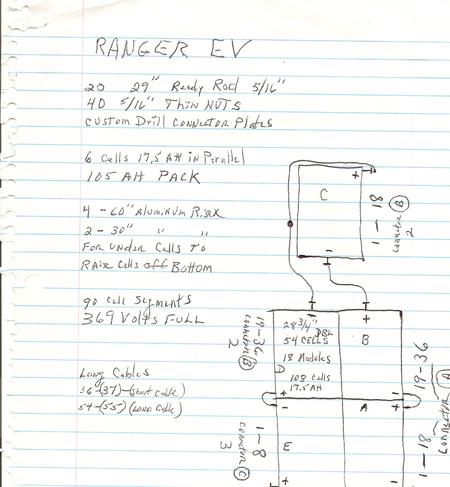 RANGER EV
20 29" Ready Rod 5/16"
40 5/16" Thin NUTS
CUSTOM Drill CONNECTOR Plates
6 Cells 17.5 AH in Parallel
105 AH PACK
4 - 60" Aluminum
2 - 30" " "
FOR UNDER Cells TO
RAISE Cells off BOTTOM
90 Cell Segments
369 Volts FULL
Long Cables
36-(37)-(Short Cable)
54-(55)-(Long Cable)
+
C
-
1-18
Connector (B)
2
-
+
28 3/4"
DBL
54 CELLS
18 Modules
108 Cells
17.5 AH
B
A
19-36
Connector (B)
2
19-36
Connector (A)
+
-
A
-
+
1-8
Connector (C)
3
E
1-18
+
-